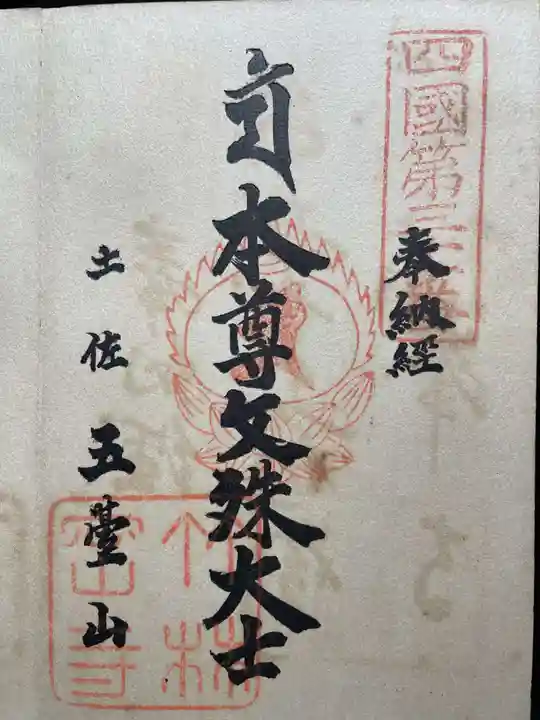 四國第三十一番
奉納経
本尊文殊大士
土佐 五臺山
竹林
密寺